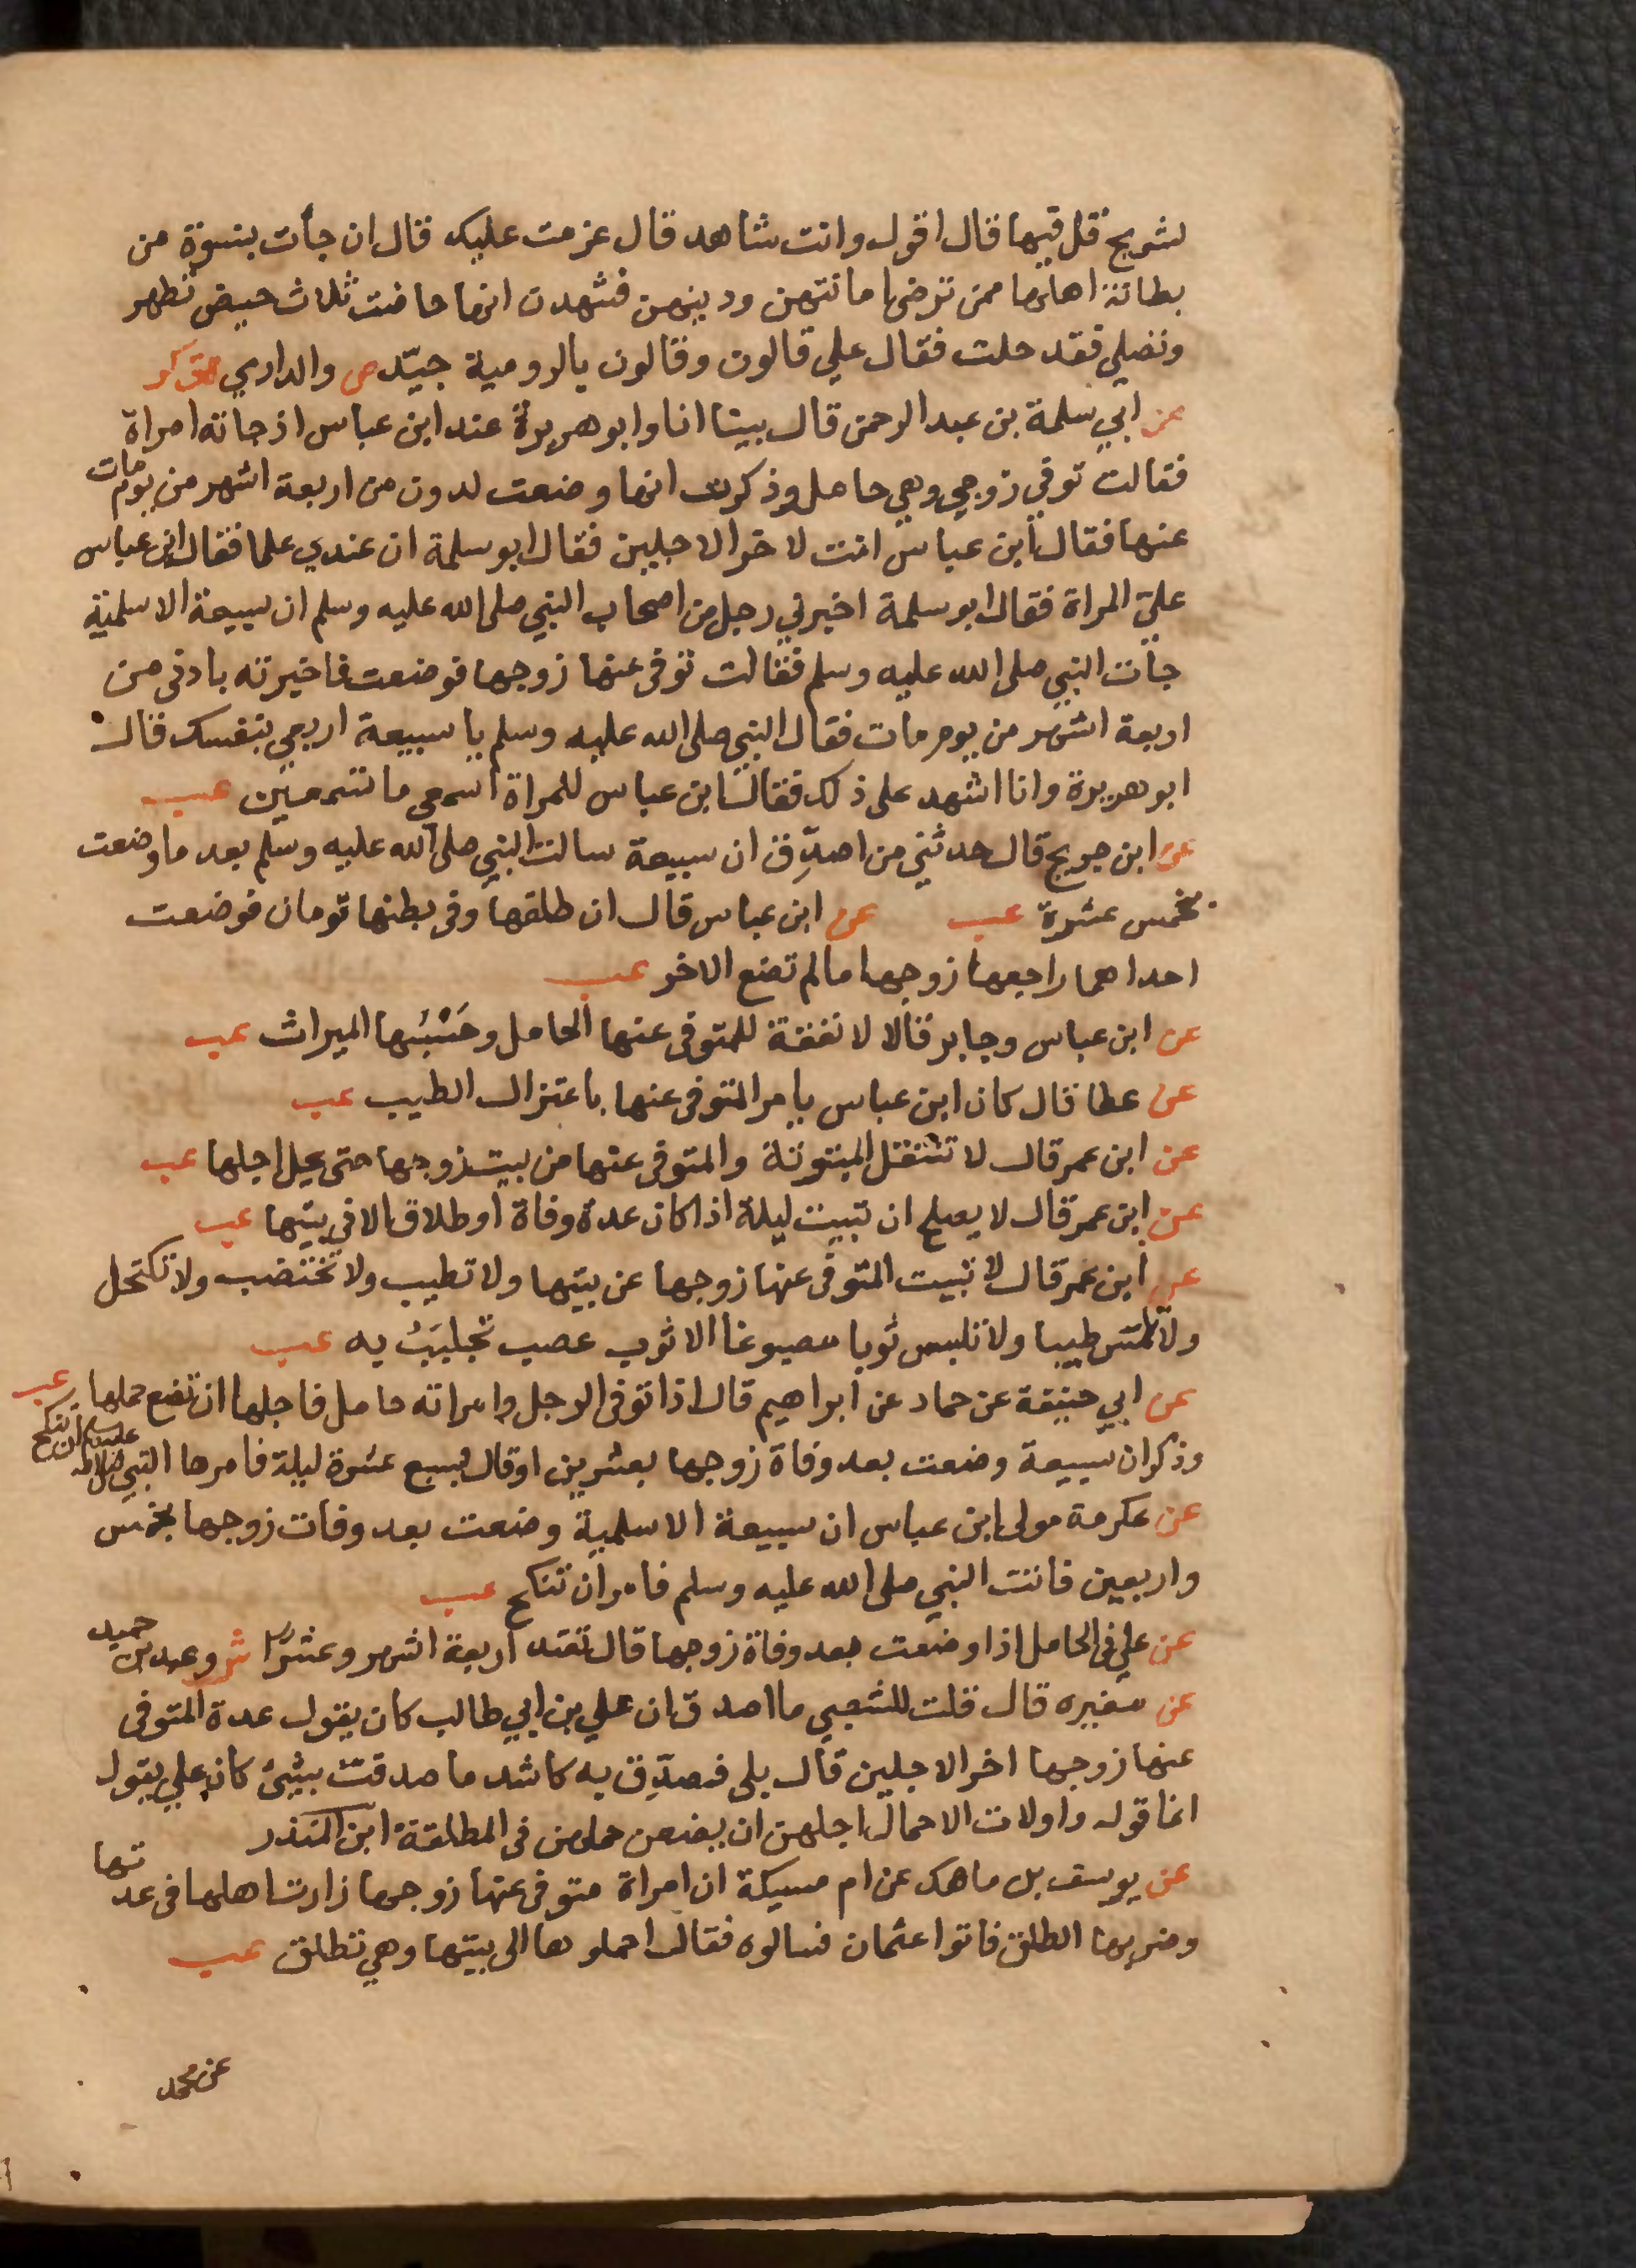 لشريح قل فيها قال اقول وانت شاهد قال عزمت عليك قال ان جأت بنسوة من
بطانة اهلها ممن ترضى امانتهن ودينهن فشهدت انها حاضت ثلاث حيض تطهر
وتصلي فقد حلت فقال علي قالون وقالون بالرومية جيّد ص والدارمي هق كر
عن ابي سلمة بن عبد الرحمن قال بينا انا وابو هريرة عند ابن عباس اذ جاته امراة
فقالت توفي زوجي وهي حامل وذكرت انها وضعت لدون من اربعة اشهر من يوم مات
عنها فقال ابن عباس انت لاخر الاجلين فقال ابو سلمة ان عندي علما فقال ابن عباس
عليّ المراة فقال ابو سلمة اخبرني رجل من اصحاب النبي صلى الله عليه وسلم ان سبيعة الاسلمية
جأت النبي صلى الله عليه وسلم فقالت توفى عنها زوجها فوضعت فاخبرته بادنى من
اربعة اشهر من يوم مات فقال النبي صلى الله عليه وسلم يا سبيعة اربعي بنفسك قال
ابو هريرة وانا اشهد على ذلك فقال ابن عباس للمراة اسمعي ما تسمعين عب
عن ابن جريج قال حدثني من اصدّق ان سبيعة سالت النبي صلى الله عليه وسلم بعد ما وضعت
بخمس عشرة عب عن ابن عباس قال ان طلقها وفى بطنها تومان فوضعت
احداهما راجعها زوجها مالم تضع الاخر عب
عن ابن عباس وجابر قالا لا نفقة للمتوفى عنها الحامل وحَسْبُها الميراث عب
عن عطا قال كان ابن عباس يامر المتوفى عنها باعتزال الطيب عب
عن ابن عمر قال لا تنتقل المبتوتة والمتوفى عنها من بيت زوجها حتى يحل اجلها عب
عن ابن عمر قال لا يصلح ان تبيت ليلة اذا كان عدة وفاة او طلاق الا في بيتها عب
عن ابن عمر قال لا تبيت المتوفى عنها زوجها عن بيتها ولا تطيب ولا تختضب ولا تكتحل
ولا تمس طيبا ولا تلبس ثوبا مصبوغا الا ثوب عصب تجلببُ به عب
عن ابي حنيفة عن حماد عن ابراهيم قال اذا توفى الرجل وامراته حامل فاجلها ان تضع حملها عب
وذكر ان سبيعة وضعت بعد وفاة زوجها بعشرين او قال لسبع عشرة ليلة فامرها النبي صلى الله عليه وسلم ان تنكح
عن عكرمة مولى ابن عباس ان سبيعة الاسلمية وضعت بعد وفات زوجها بخمس
واربعين فاتت النبي صلى الله عليه وسلم فامر ان تنكح عب
عن علي فى الحامل اذا وضعت بعد وفاة زوجها قال تعتد اربعة اشهر وعشرًا ش وعبد بن حميد
عن مغيره قال قلت للشعبي ما اصدق ان علي بن ابي طالب كان يقول عدة المتوفى
عنها زوجها اخر الاجلين قال بلى فصدّق به كاشد ما صدقت بشئ كان علي يقول
انما قوله واولات الاحمال اجلهن ان يضعن حملهن فى المطلقة ابن المنذر
عن يوسف بل ماهك عن ام مسيكة ان امراة متوفى عنها زوجها زارت اهلها فى عدتها
وضربها الطلق فاتوا عثمان فسالوه فقال احملوها الى بيتها وهي تطلق عب
عن محمد